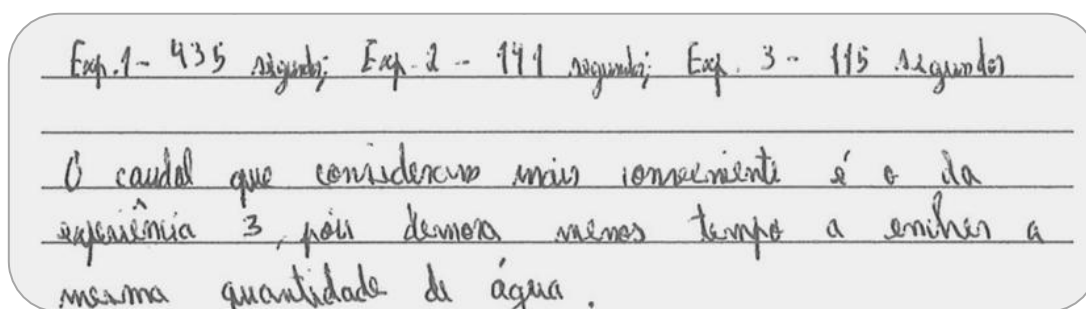 Exp. 1 - 435 segundos; Exp. 2 - 191 segundos; Exp. 3 - 115 segundos
O caudal que consideramos mais conveniente é o da
experiência 3, pois demora menos tempo a encher a
mesma quantidade de água.